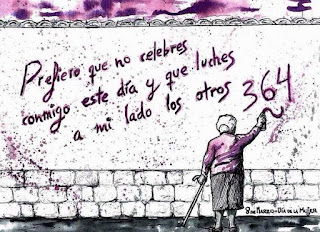 Prefiero que no celebres
conmigo este día y que luches
a mi lado los otros 364
8 de Marzo-Día de la Mujer